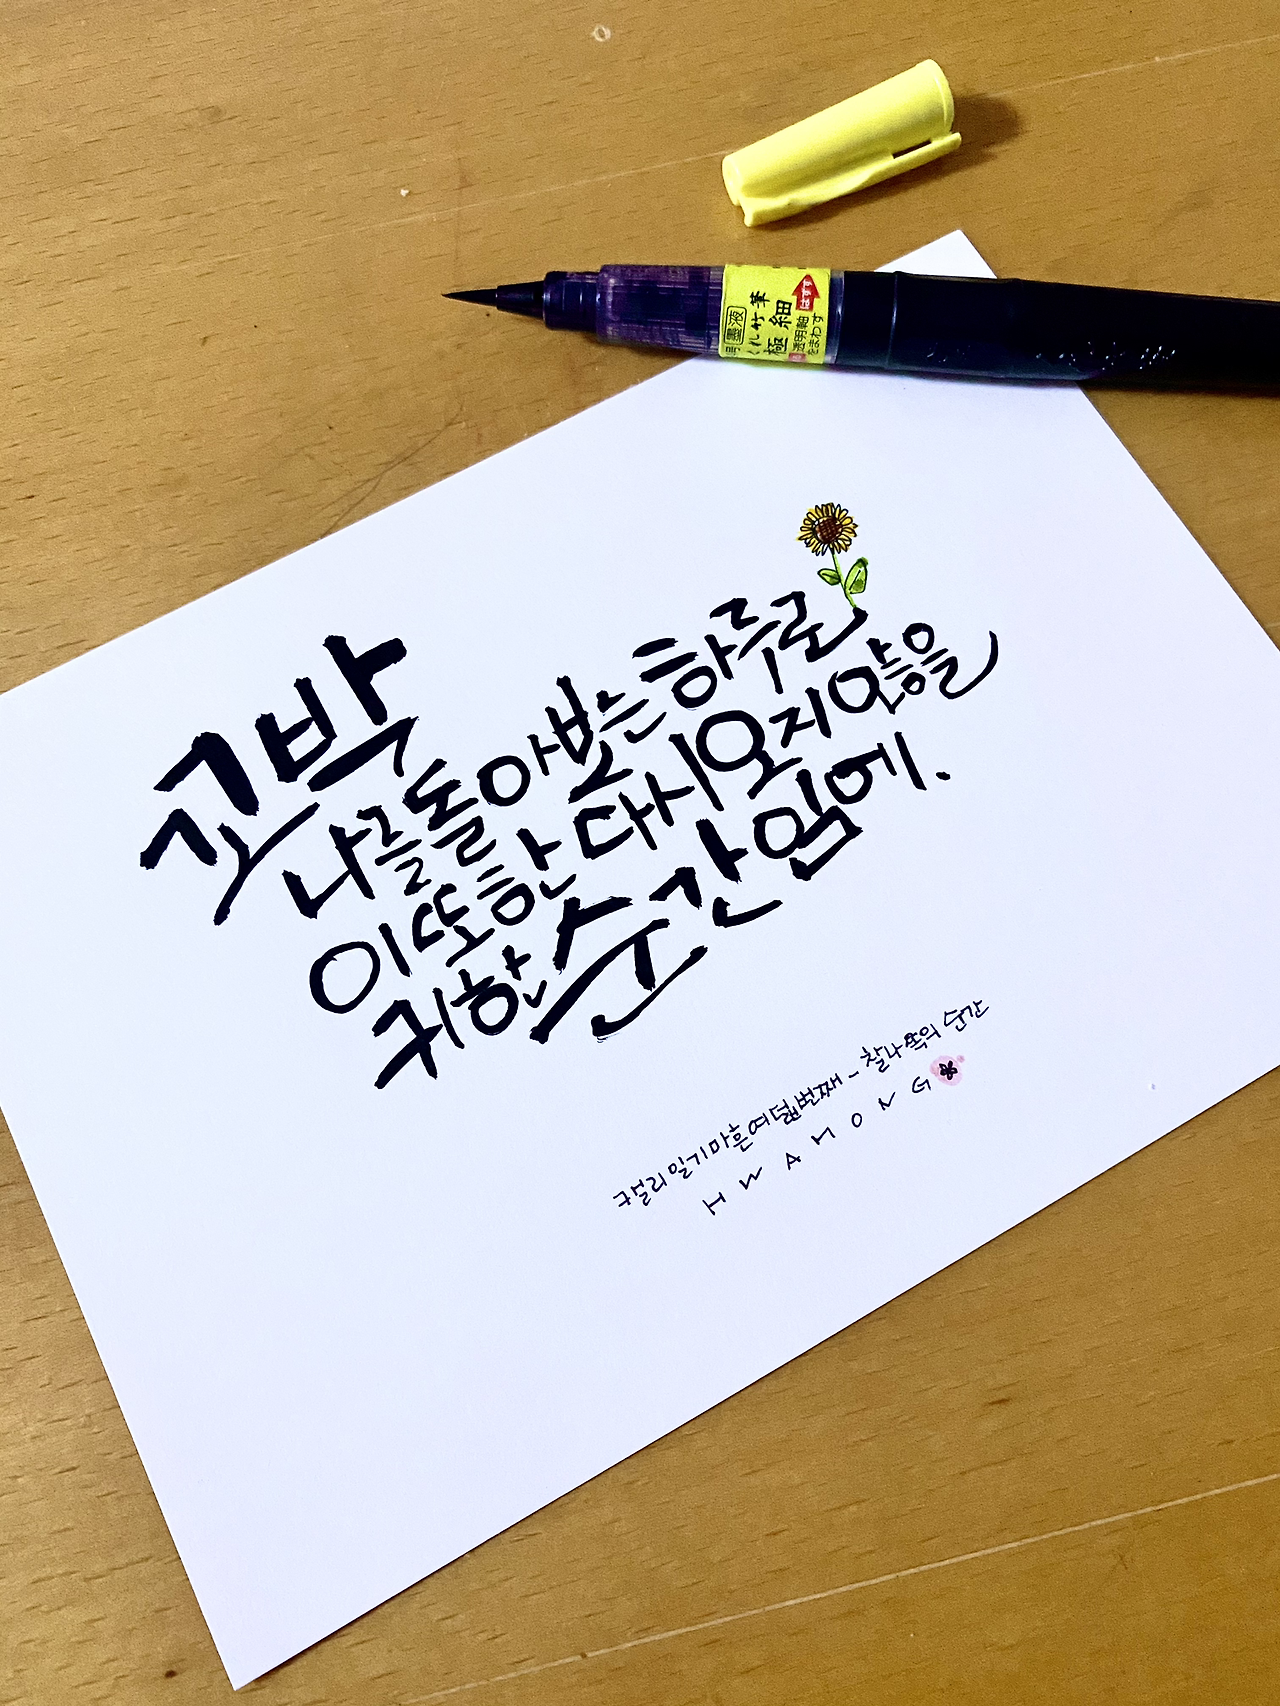 墨液
くれ竹筆
極細
はずす
透明軸
をまわす
꼬박
나를 돌아보는 하루로
이 또한 다시 오지 않음을
귀한 순간임에.
일기 마흔여덟번째 - 찰나 속의 순간
HWAHONG